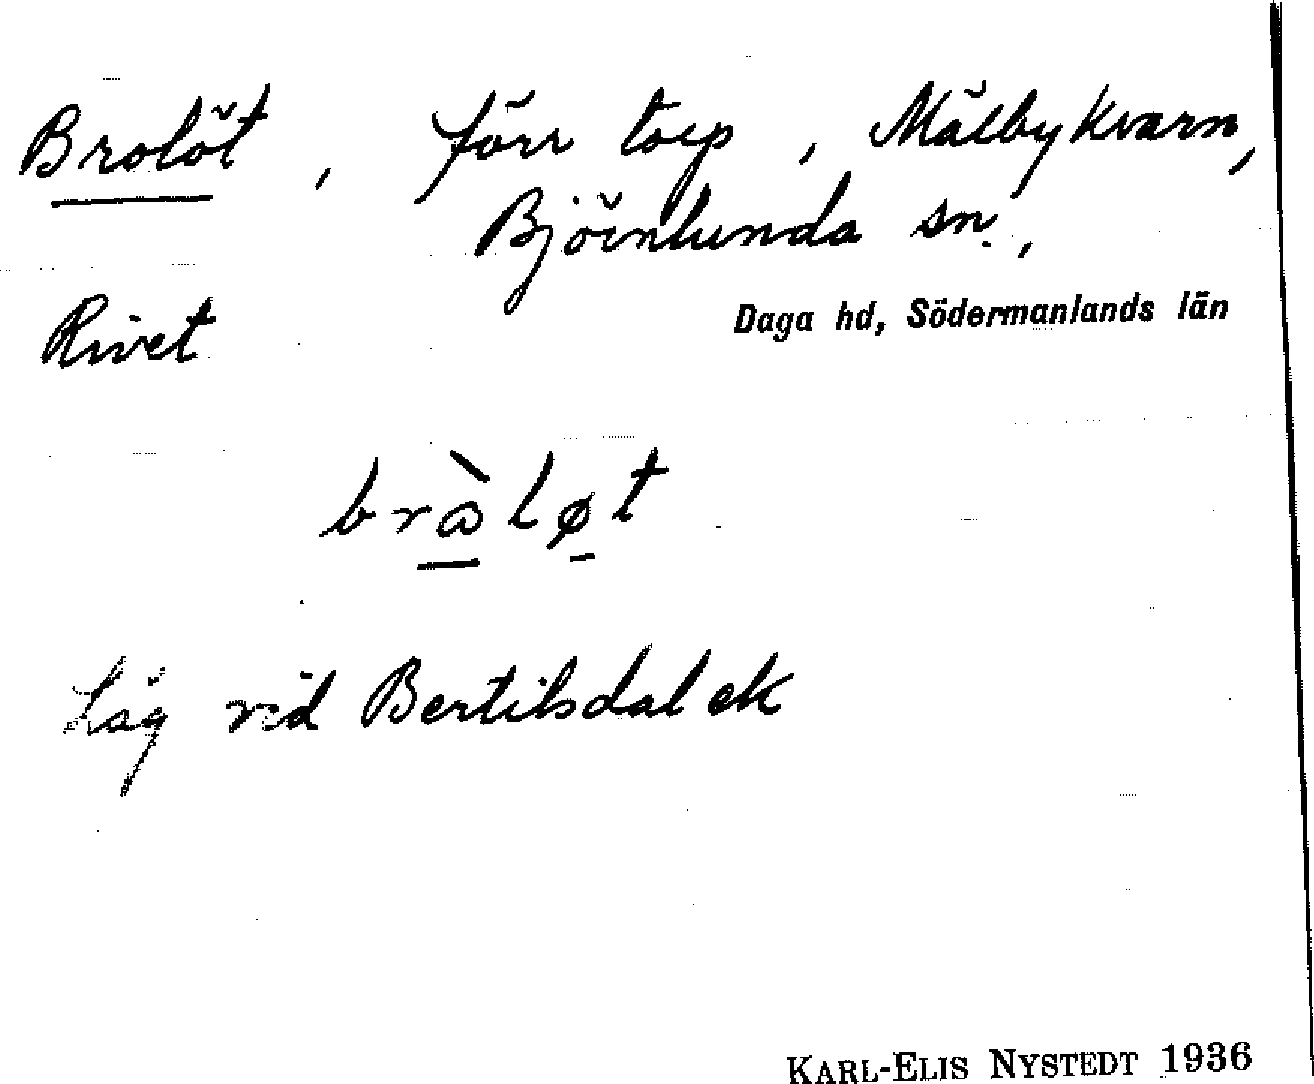 Brolöt, förr torp, Målby kvarn,
Björnlunda sn.,
Rivet
Daga hd, Södermanlands län
bràløt
Låg vid Bertilsdal ek
KARL-ELIS NYSTEDT 1936